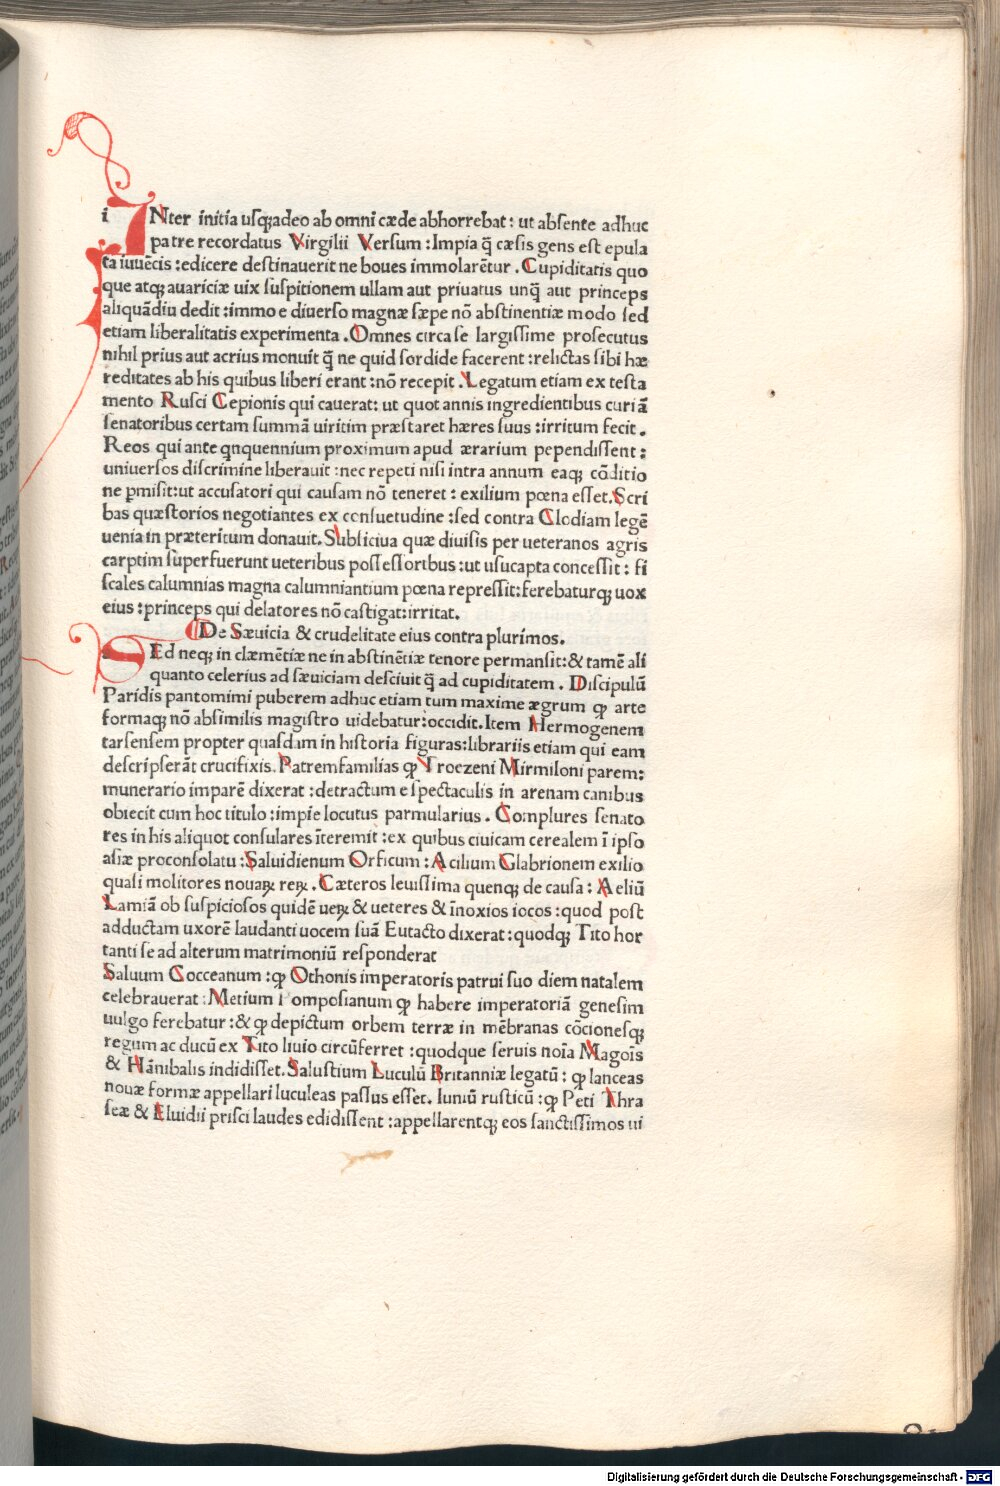 INter initia usq; adeo ab omni cæde abhorrebat: ut absente adhuc
patre recordatus Virgilii Versum: Impia q̃ cæsis gens est epula
ta iuuẽcis: edicere destinauerit ne boues immolarẽtur. Cupiditatis quo
que atq; auariciæ uix suspitionem ullam aut priuatus unq̃ aut princeps
aliquãdiu dedit: immo e diuerso magnæ sæpe nõ abstinentiæ modo sed
etiam liberalitatis experimenta. Omnes circa se largissime prosecutus
nihil prius aut acrius monuit q̃ ne quid sordide facerent: relictas sibi hæ
reditates ab his quibus liberi erant: nõ recepit. Legatum etiam ex testa
mento Rusci Cepionis qui cauerat: ut quot annis ingredientibus curiã
senatoribus certam summã uiritim præstaret hæres suus: irritum fecit.
Reos qui ante qnquennium proximum apud ærarium pependissent:
uniuersos discrimine liberauit: nec repeti nisi intra annum eaq; cõditio
ne pmisit: ut accusatori qui causam nõ teneret: exilium pœna esset. Scri
bas quæstorios negotiantes ex consuetudine: sed contra Clodiam legẽ
uenia in præteritum donauit. Subsiciua quæ diuisis per ueteranos agris
carptim superfuerunt ueteribus possessoribus: ut usucapta concessit: fi
scales calumnias magna calumniantium pœna repressit: ferebaturq; uox
eius: princeps qui delatores nõ castigat: irritat.
De Sæuicia & crudelitate eius contra plurimos.
SEd neq; in clæmẽtiæ ne in abstinẽtiæ tenore permansit: & tamẽ ali
quanto celerius ad sæuiciam desciuit q̃ ad cupiditatem. Discipulũ
Paridis pantomimi puberem adhuc etiam tum maxime ægrum ꝙ arte
formaq; nõ absimilis magistro uidebatur: occidit. Item Hermogenem
tarsensem propter quasdam in historia figuras: librariis etiam qui eam
descripserãt crucifixis. Patremfamilias ꝙ Troezeni Mirmiloni parem:
munerario imparẽ dixerat: detractum e spectaculis in arenam canibus
obiecit cum hoc titulo: impie locutus parmularius. Complures senato
res in his aliquot consulares ĩteremit: ex quibus ciuicam cerealem ĩ ipso
asiæ proconsolatu: Saluidienum Orficum: Acilium Glabrionem exilio
quasi molitores nouaꝝ reꝝ. Cæteros leuissima quenq; de causa: Aeliũ
Lamiã ob suspiciosos quidẽ ueꝝ & ueteres & ĩnoxios iocos: quod post
adductam uxorẽ laudanti uocem suã Eutacto dixerat: quodq; Tito hor
tanti se ad alterum matrimoniũ responderat
Saluum Cocceanum: ꝙ Othonis imperatoris patrui suo diem natalem
celebrauerat: Metium Pomposianum ꝙ habere imperatoriã genesim
uulgo ferebatur: & ꝙ depictum orbem terræ in mẽbranas cõcionesq;
regum ac ducũ ex Tito liuio circũferret: quodque seruis noĩa Magoĩs
& Hãnibalis indidisset. Salustium Luculũ Britanniæ legatũ: ꝙ lanceas
nouæ formæ appellari luculeas passus esset. Iuniũ rusticũ: ꝙ Peti Thra
seæ & Eluidii prisci laudes edidissent: appellarentq; eos sanctissimos ui
Digitalisierung gefördert durch die Deutsche Forschungsgemeinschaft - DFG